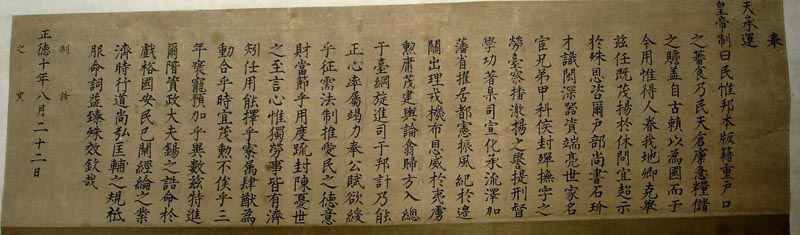 奉
天承運
皇帝制曰民惟邦本版籍重戶口
之蕃食乃民天倉庾意糧儲
之贍盖自古賴以為國而于
今用惟得人眷我地卿克舉
玆任既茂揚於休問宜超示
於殊恩咨爾戶部尚書石玠
才識閎深器資端亮世家名
宦兄弟甲科侯封殫撫字之
勞臺察播激揚之譽提刑督
學功著臬司宣化承流澤加
藩省擢居都憲振風紀於邊
關出理戎機布恩威於夷虜
勲庸茂建輿論翕歸方入總
于臺綱旋進司于邦計乃能
正心率屬竭力奉公賦欲緩
乎征需法制推愛民之德意
財當節乎用度疏封陳憂世
之至言心惟獨勞事皆有濟
矧任用能擇乎寮肆猷為
動合乎時宜茂勲不俟乎三
年褒寵預加乎異數玆特進
爾階資政大夫錫之誥命於
戲裕國安民已開經綸之業
濟時行道尚弘匡輔之規祗
服命詞益臻殊效欽哉
制誥
正德十年八月二十二日
之寶